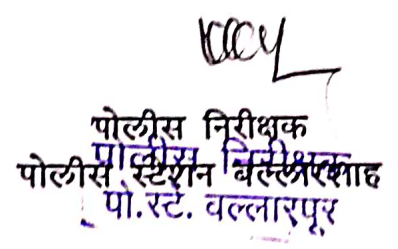 पोलीस निरीक्षक
पोलीस निरीक्षक
पोलीस स्टेशन बल्लारशाह
पो.स्टे. वल्लारपूर